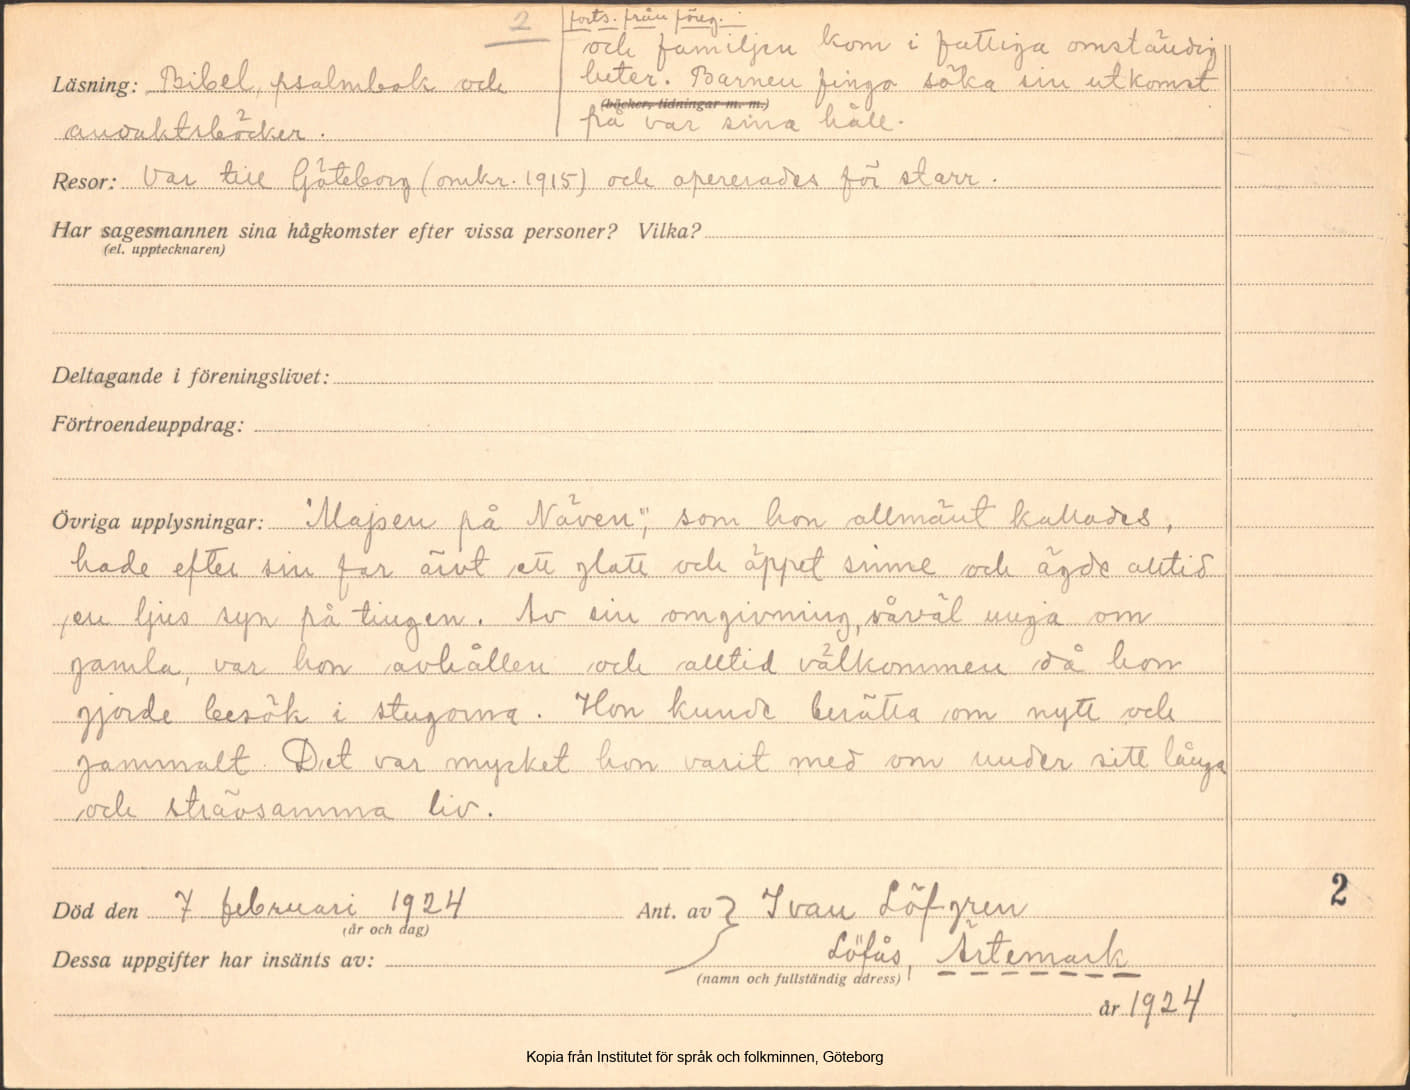 2
forts. från föreg.
och familjen kom i fattiga omständig
heter. Barnen fingo söka sin utkomst
på var sina håll.
Läsning: Bibel, psalmbok och
(böcker, tidningar m. m.)
andaktsböcker.
Resor: Var till Göteborg (omkr. 1915) och opererades för starr.
Har sagesmannen sina hågkomster efter vissa personer? Vilka?
(el. upptecknaren)
Deltagande i föreningslivet:
Förtroendeuppdrag:
Övriga upplysningar: "Majsen på Näven", som hon allmänt kallades,
hade efter sin far ärvt ett glatt och öppet sinne och ägde alltid
en ljus syn på tingen. Av sin omgivning, såväl unga om
gamla, var hon avhållen och alltid välkommen då hon
gjorde besök i stugorna. Hon kunde berätta om nytt och
gammalt. Det var mycket hon varit med om under sitt långa
och strävsamma liv.
2
Död den 7 februari 1924 Ant. av Ivan Löfgren
(år och dag)
Dessa uppgifter har insänts av: Löfås, Ärtemark
(namn och fullständig adress)
år 1924
Kopia från Institutet för språk och folkminnen, Göteborg